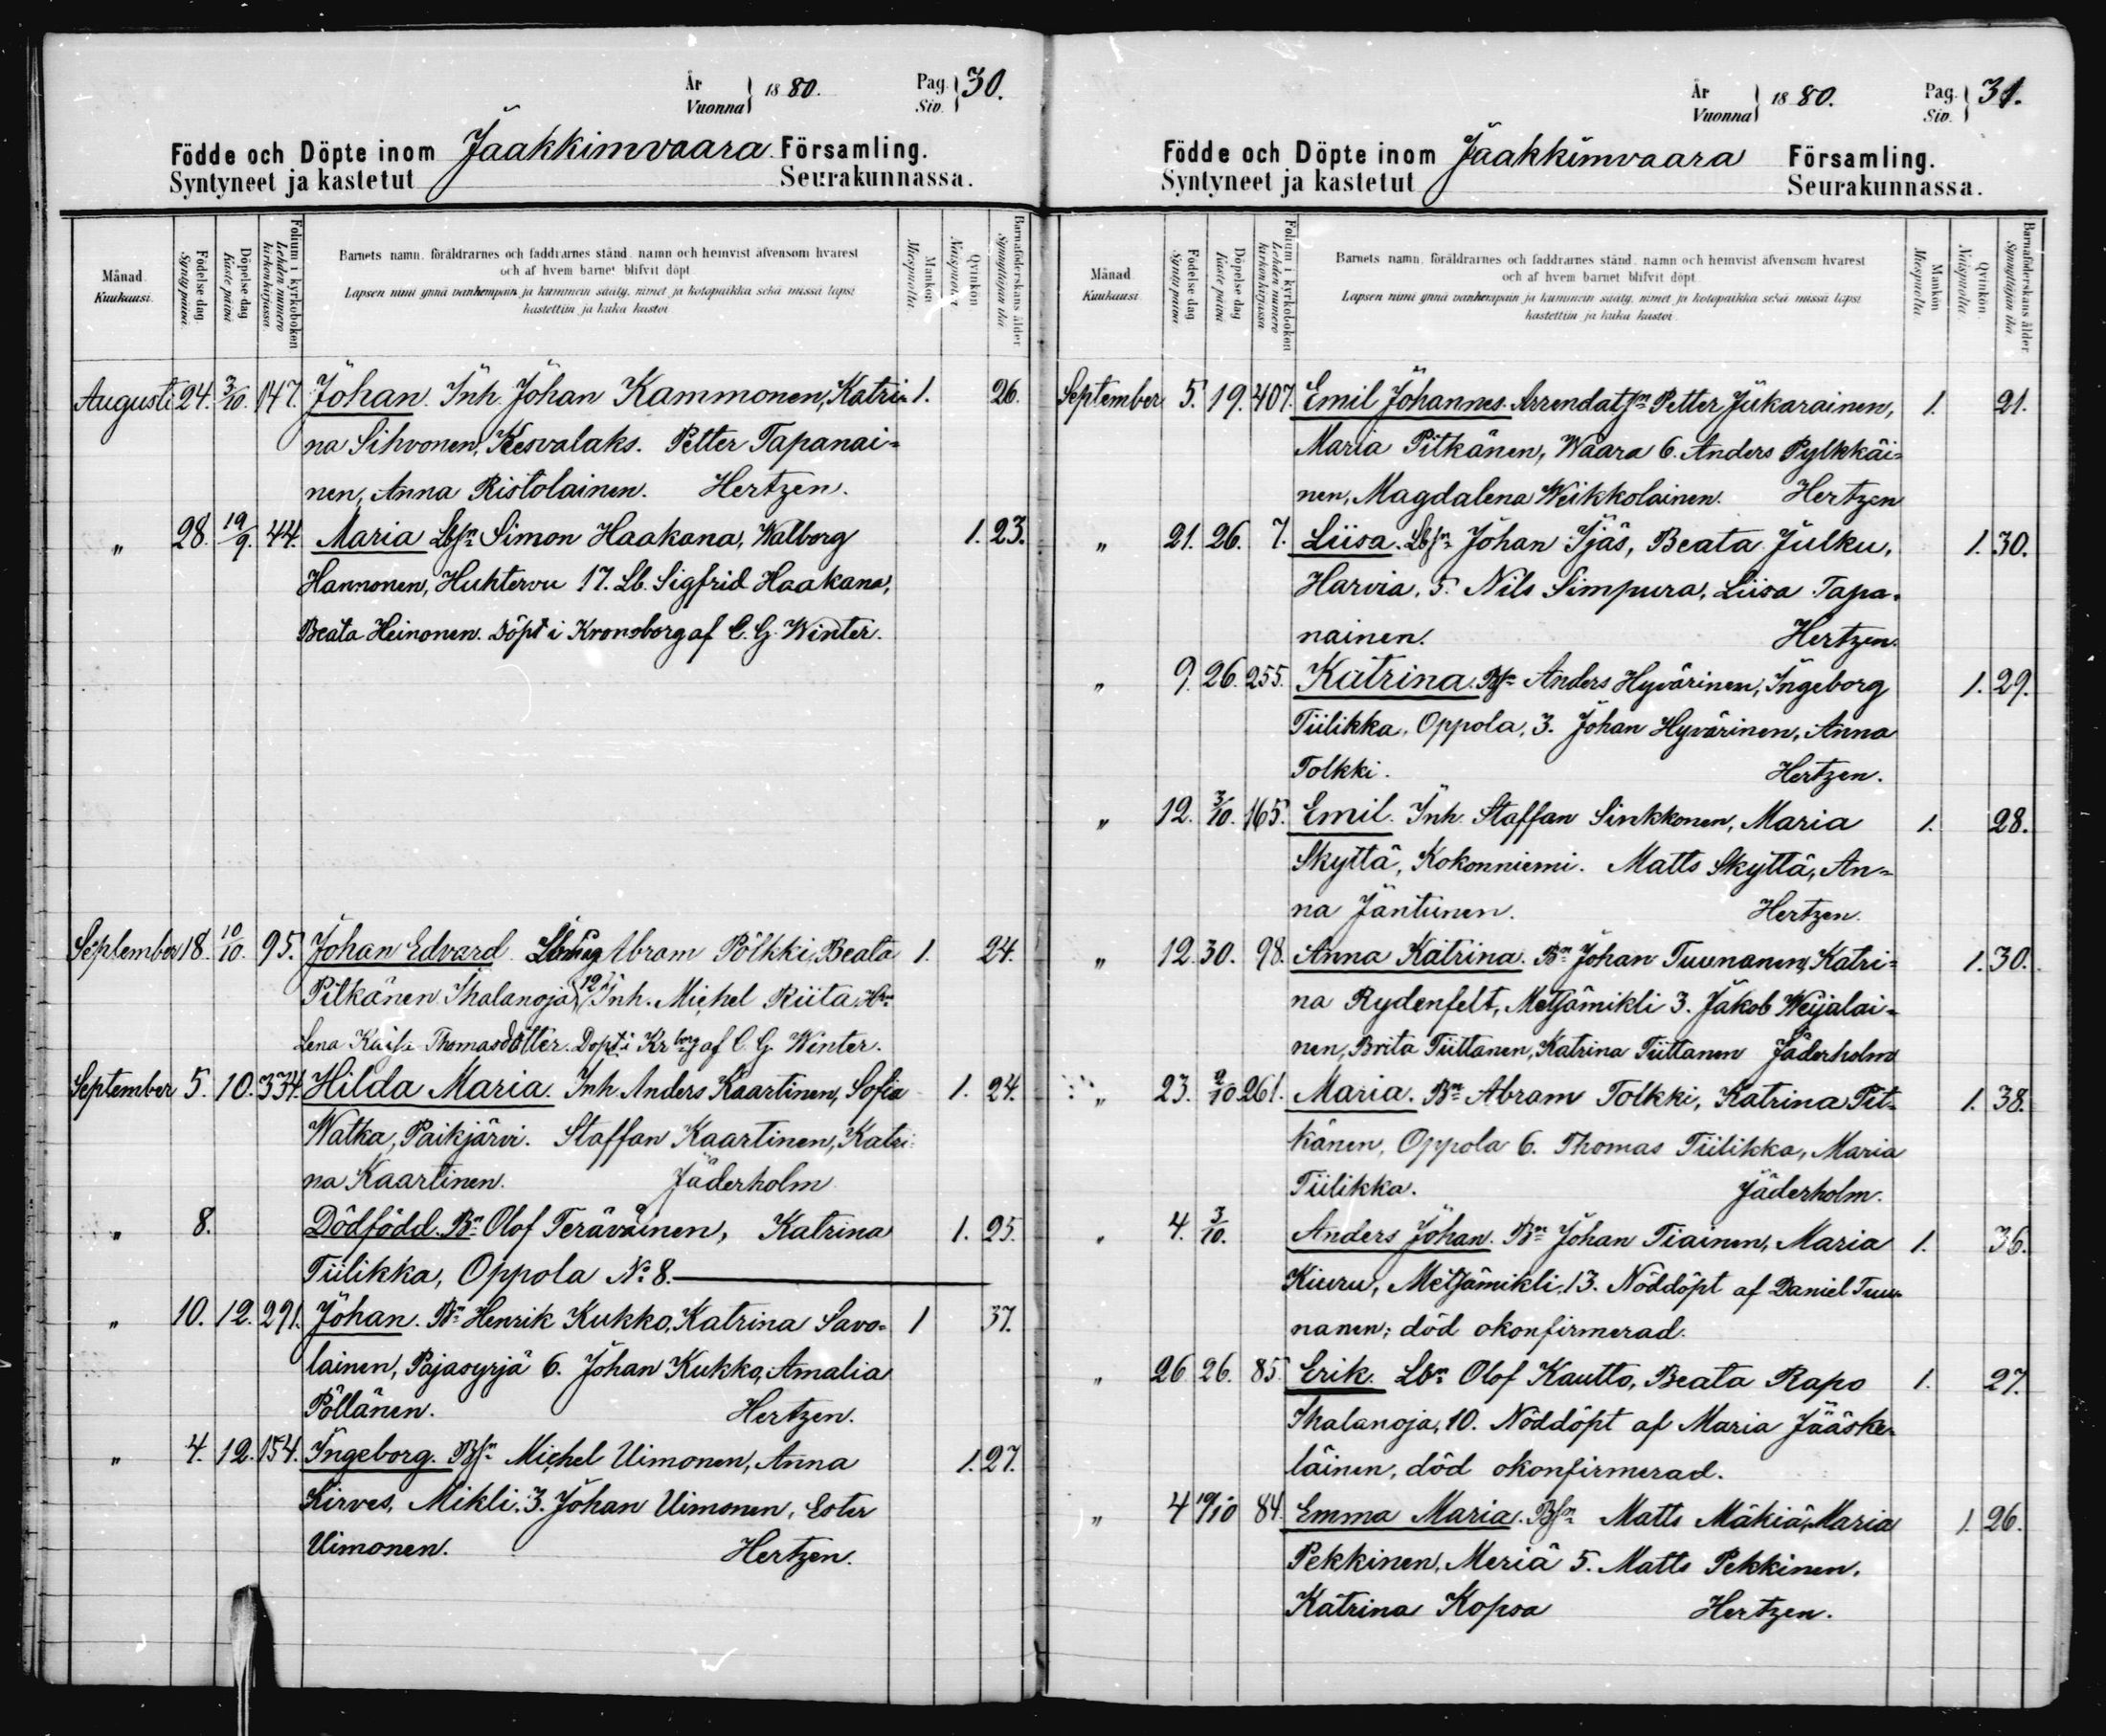 År
Vuonna } 1880. Pag. Siv. } 30.
Födde och Döpte inom Jaakkimvaara Församling.
Syntyneet ja kastetut Seurakunnassa.
Månad. Kuukausi.
Födelse dag. Synty päivä.
Döpelse dag Kaste päivä
Folium i kyrkoboken Lehden numero kirkonkirjassa.
Barnets namn, föräldrarnes och faddrarnes stånd, namn och hemvist äfvensom hvarest
och af hvem barnet blifvit döpt.
Lapsen nimi ynnä vanhempain ja kummein sääty, nimet ja kotopaikka sekä missä lapsi
kastettiin ja kuka kastoi.
Mankön Miespuolta.
Qvinkön Naispuolta.
Barnaföderskans ålder Synnyttäjän ikä.
Augusti 24. 3/10. 147. Johan. Inh. Johan Kammonen, Katri- 1. 26.
na Sihvonen, Kesvalaks. Petter Tapanai-
nen, Anna Ristolainen. Hertzen.
" 28. 19/9. 44. Maria Lbsn Simon Haakana, Walborg 1. 23.
Hannonen, Huhtervu 17. Lb. Sigfrid Haakana,
Beata Heinonen. Döpt i Kronoborg af C. G. Winter.
September 18. 10/10. 95. Johan Edvard Abram Pölkki, Beata 1. 24.
Pitkänen Ihalanoja 12 Inh. Michel Riita
Lena Kaisa Thomasdotter. Döpt i Krborg af C. G. Winter.
September 5. 10. 334. Hilda Maria. Inh. Anders Kaartinen, Sofia 1. 24.
Watka, Paikjärvi. Staffan Kaartinen, Katri-
na Kaartinen. Jäderholm
" 8. Dödfödd. Bn Olof Teräväinen, Katrina 1. 25.
Tiilikka, Oppola No 8.
" 10. 12. 291. Johan. Bn Henrik Kukko, Katrina Savo- 1 37.
lainen, Pajasyrjä 6. Johan Kukko, Amalia
Pöllänen. Hertzen.
" 4. 12. 154. Ingeborg. Bsn Michel Uimonen, Anna 1. 27.
Kirves, Mikli. 3. Johan Uimonen, Ester
Uimonen. Hertzen.
År
Vuonna } 1880. Pag. Siv. } 31.
Födde och Döpte inom Jaakkimvaara Församling.
Syntyneet ja kastetut Seurakunnassa.
Månad. Kuukausi.
Födelse dag Synty päivä
Döpelse dag Kaste päivä
Folium i kyrkoboken Lehden numero kirkonkirjassa
Barnets namn, föräldrarnes och faddrarnes stånd, namn och hemvist äfvensom hvarest
och af hvem barnet blifvit döpt.
Lapsen nimi ynnä vanhempain ja kummein sääty, nimet ja kotopaikka sekä missä lapsi
kastettiin ja kuka kastoi.
Mankön Miespuolta
Qvinkön Naispuolta
Barnaföderskans ålder Synnyttäjän ikä.
September 5. 19. 407. Emil Johannes. Arrendatsn Petter Jukarainen, 1. 21.
Maria Pitkänen, Waara 6. Anders Pylkkäi-
nen, Magdalena Weikkolainen. Hertzen
" 21. 26. 7. Liisa. Lbsn Johan Ijäs, Beata Julku, 1. 30.
Harvia. 5. Nils Simpura, Liisa Tapa-
nainen. Hertzen.
" 9. 26. 255. Katrina. Bsn Anders Hyvärinen, Ingeborg 1. 29.
Tiilikka, Oppola, 3. Johan Hyvärinen, Anna
Tolkki. Hertzen.
" 12. 3/10. 165. Emil. Inh. Staffan Sinkkonen, Maria 1. 28.
Skyttä, Kokonniemi. Matts Skyttä, An-
na Jantunen. Hertzen.
" 12. 30. 98. Anna Katrina. Bn Johan Tuunanen, Katri- 1. 30.
na Rydenfelt, Metsämikli 3. Jakob Weijalai-
nen, Brita Tiittanen, Katrina Tiittanen Jäderholm
" 23. 2/10 261. Maria. Bn Abram Tolkki, Katrina Pit- 1. 38.
känen, Oppola 6. Thomas Tiilikka, Maria
Tiilikka. Jäderholm.
" 4. 3/10. Anders Johan. Bn Johan Tiainen, Maria 1. 36.
Kiuru, Metsämikli, 13. Nöddöpt af Daniel Tuu-
nanen; död okonfirmerad.
" 26. 26. 85. Erik. Lbn Olof Kautto, Beata Rapo 1. 27.
Ihalanoja, 10. Nöddöpt af Maria Jääske-
läinen, död okonfirmerad.
" 4 10/10 84. Emma Maria. Bsn Matts Mäkiä, Maria 1. 26.
Pekkinen, Meriä 5. Matts Pekkinen,
Katrina Kopsa Hertzen.